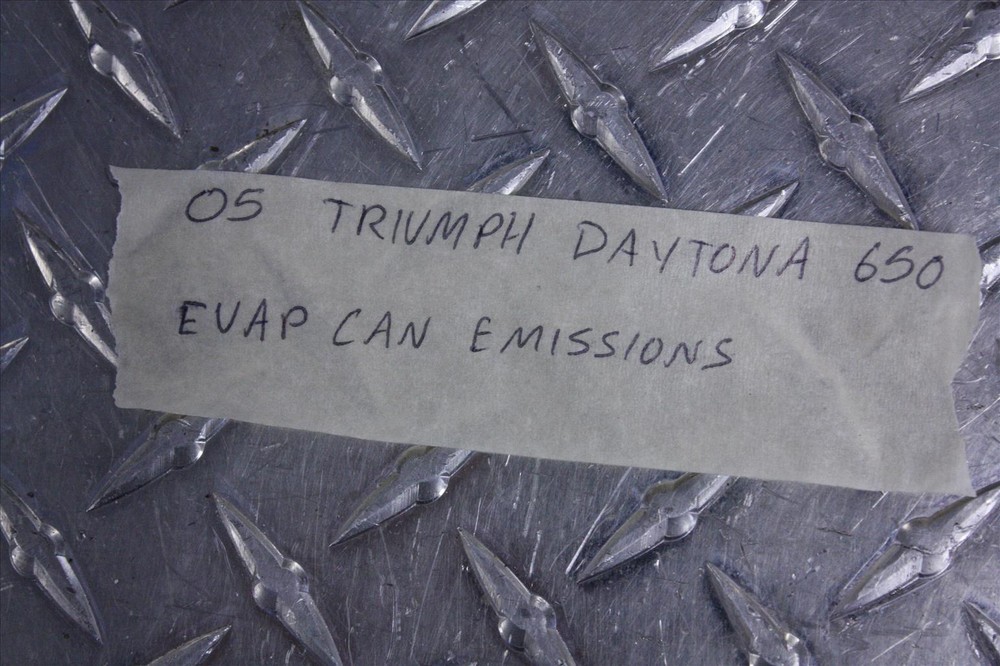 05 TRIUMPH DAYTONA 650
EVAP CAN EMISSIONS